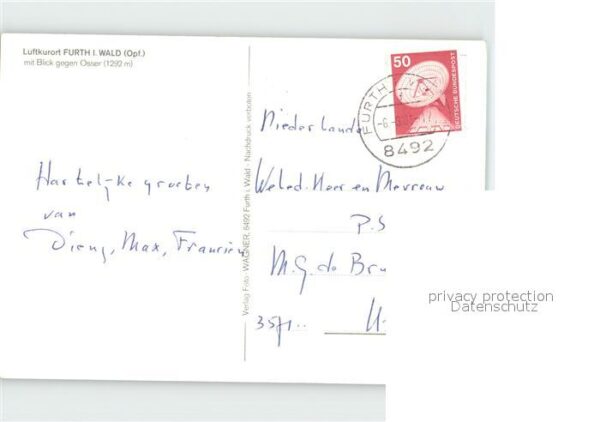 Luftkurort FURTH I. WALD (Opf.)
mit Blick gegen Osser (1292 m)
Hartelijke groeten
van
Dieny, Max, Francien
Verlag Foto-WAGNER, 8492 Furth i. Wald - Nachdruck verboten
50
DEUTSCHE BUNDESPOST
FURTH
8492
Nederland
Weled. Heer en Mevrouw
P.S
M.G. de Bru
3571..
privacy protection
Datenschutz